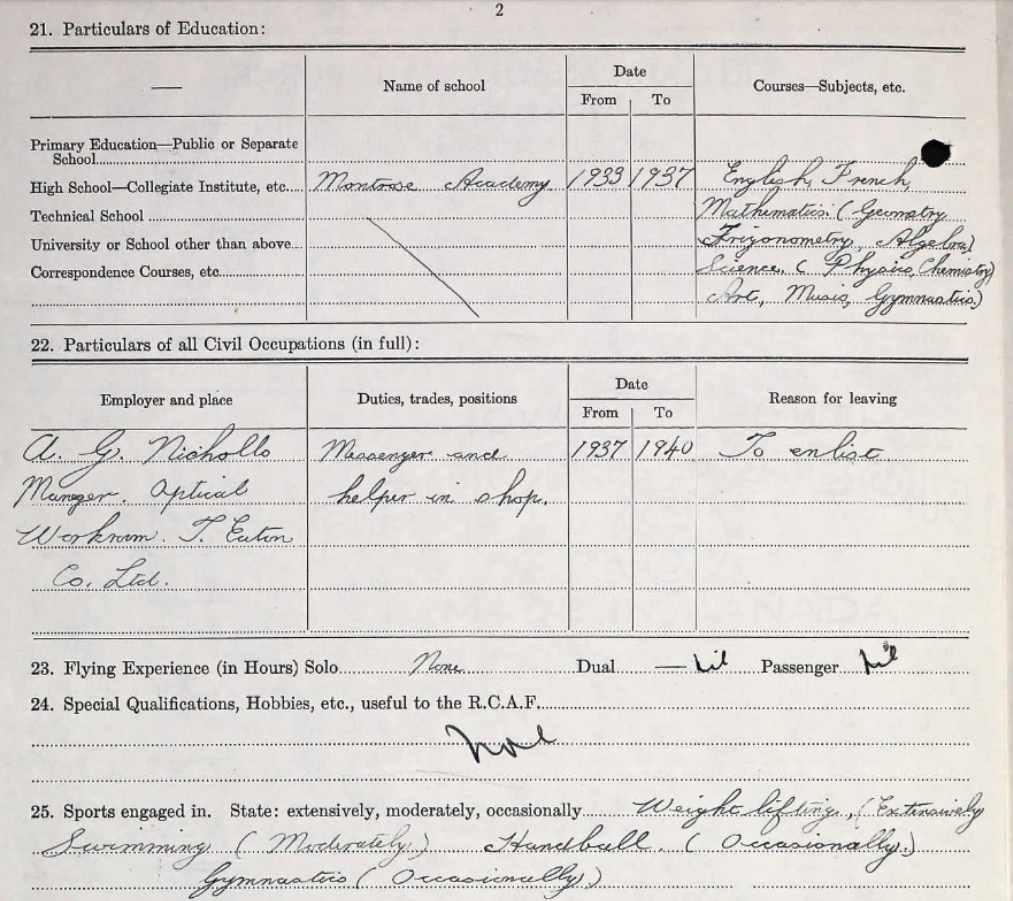 2
21. Particulars of Education:
— Name of school Date Courses—Subjects, etc.
From To
Primary Education—Public or Separate
School
High School—Collegiate Institute, etc. Montrose Academy 1933 1937 English, French,
Technical School Mathematics. (Geometry
University or School other than above Trigonometry, Algebra)
Correspondence Courses, etc. Science. (Physics, Chemistry)
Art, Music, Gymnastics.)
22. Particulars of all Civil Occupations (in full):
Employer and place Duties, trades, positions Date Reason for leaving
From To
A. G. Nicholls Messenger and 1937 1940 To enlist
Manager. Optical helper in shop.
Workroom. T. Eaton
Co. Ltd.
23. Flying Experience (in Hours) Solo None Dual — Nil Passenger Nil
24. Special Qualifications, Hobbies, etc., useful to the R.C.A.F.
None
25. Sports engaged in. State: extensively, moderately, occasionally Weight lifting, (Extensively
Swimming (Moderately.) Handball. (Occasionally.)
Gymnastics (Occasionally)